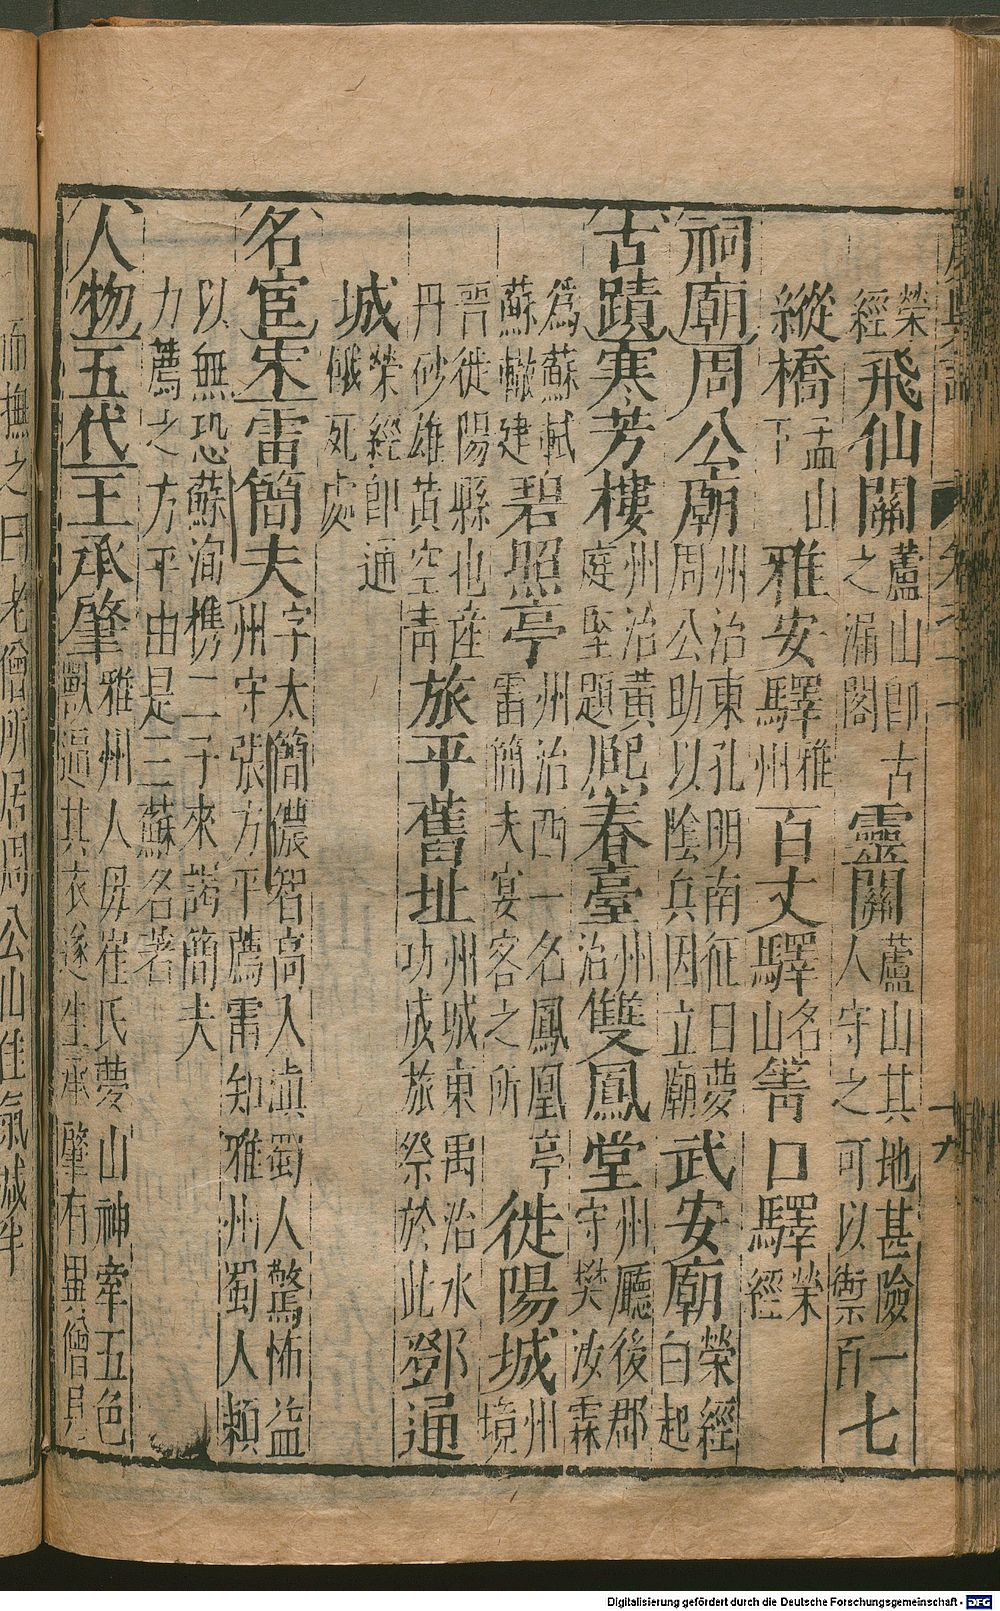 榮經飛仙關蘆山即古之漏閣靈關蘆山其地甚險一人守之可以禦百七
縱橋孟山下雅安驛雅州百丈驛名山箐口驛榮經
祠廟周公廟州治東孔明南征日夢周公助以陰兵因立廟武安廟榮經白起
古蹟寒芳樓州治黃庭堅題熈春臺州治雙鳳堂州廳後郡守樊汝霖
爲蘇軾蘇轍建碧照亭州治西一名鳳凰亭雷簡夫宴客之所徙陽城州境
晉徙陽縣也産丹砂雄黃空青旅平舊址州城東禹治水功成旅祭於此鄧通
城榮經即通餓死處
名宦宋雷簡夫字太簡儂智高入滇蜀人驚怖益州守張方平薦雷知雅州蜀人頼
以無恐蘇洵携二子來謁簡夫力薦之方平由是三蘇名著
人物五代王承肇雅州人毋崔氏夢山神牽五色獸逼其衣遂生承肇有異僧見
而撫之曰老僧所居周公山佳氣減半
十九
Digitalisierung gefördert durch die Deutsche Forschungsgemeinschaft - DFG